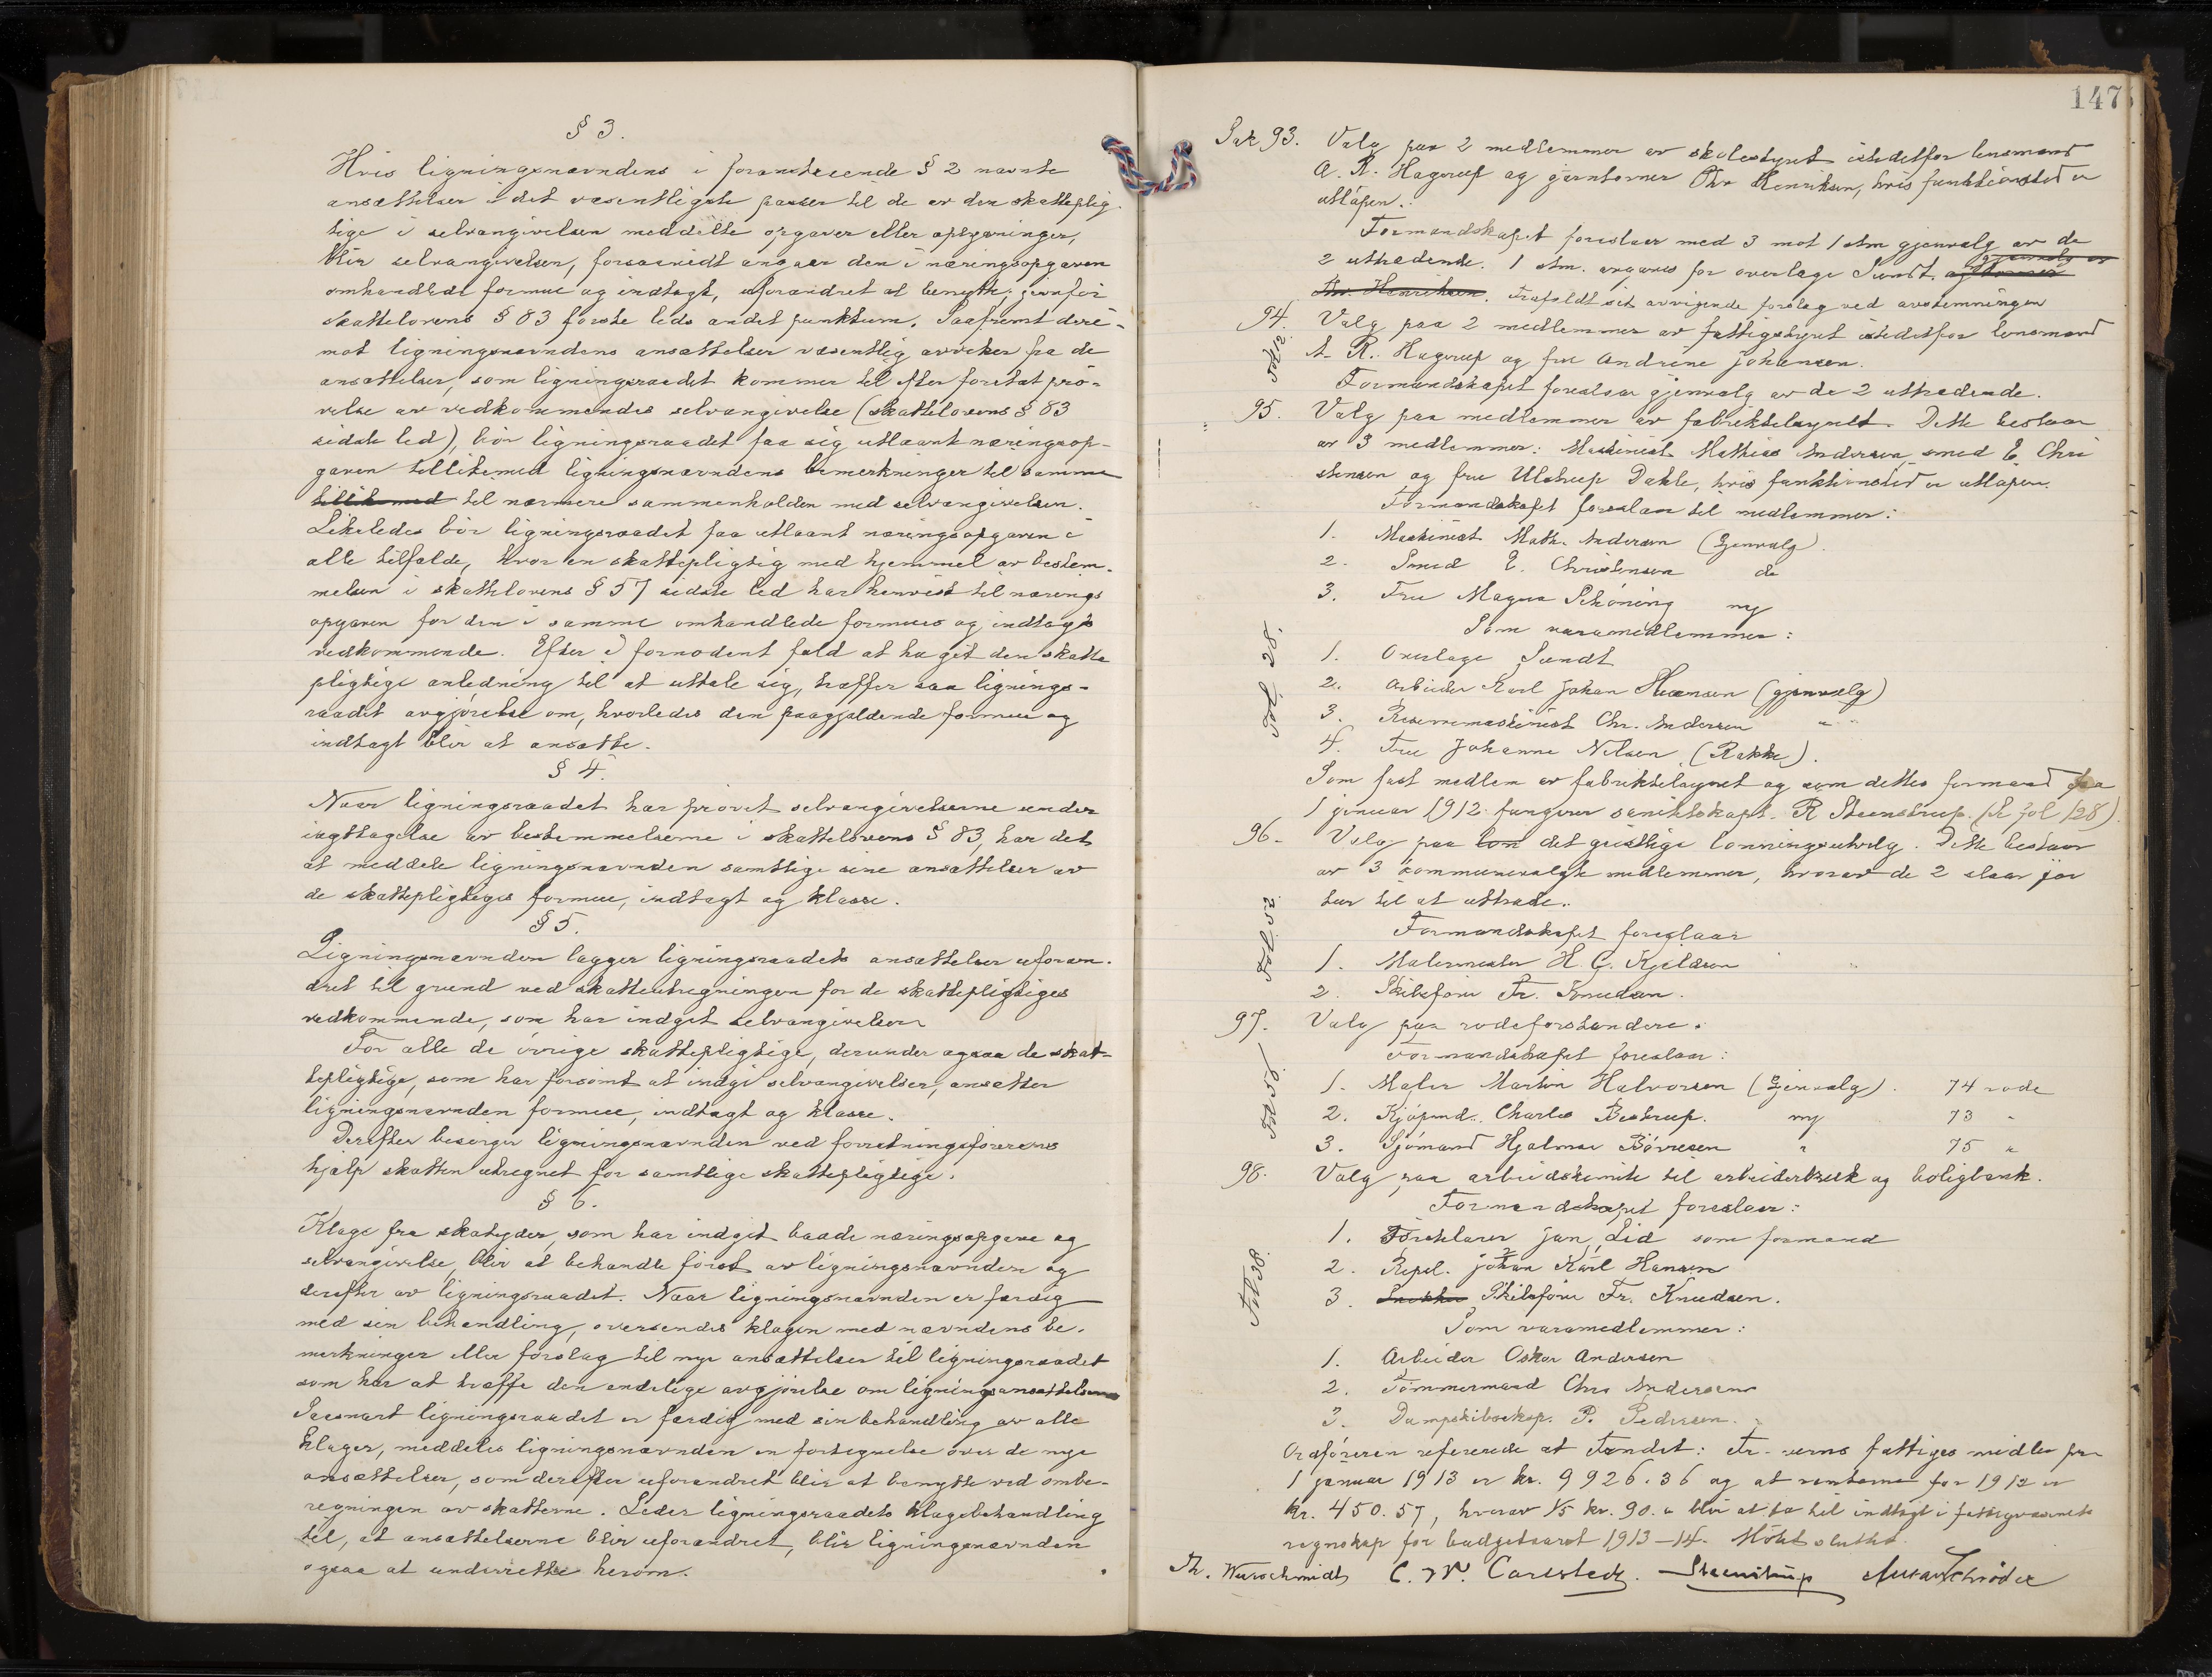 § 3.
Hvis ligningsnævndens i foranstaaende § 2 nævnte
ansættelser i det væsentligste passer til de av den skatteplig-
tige i selvangivelsen meddelte opgaver eller oplysninger,
blir selvangivelsen, forsaavidt angaar den i næringsopgaven
omhandlede formue og indtægt, uforandret at benytte, jevnfør
skattelovens § 83 første leds andet punktum. Saafremt deri-
mot ligningsnævndens ansættelser væsentlig avviker fra de
ansættelser, som ligningsraadet kommer til efter foretat prø-
velse av vedkommendes selvangivelse (skattelovens § 83
sidste led), bør ligningsraadet faa sig utlaant næringsop-
gaven tillikemed ligningsnævndens bemerkninger til samme
tillikemed til nærmere sammenholden med selvangivelsen.
Likeledes bør ligningsraadet faa utlaant næringsopgaven i
alle tilfælde, hvor en skattepligtig med hjemmel av bestem-
melsen i skattelovens § 57 sidste led har henvist til nærings
opgaven for den i samme omhandlede formues og indtægts
vedkommende. Efter i fornødent fald at ha git den skatte
pligtige anledning til at uttale sig, træffer saa lignings-
raadet avgjørelse om, hvorledes den paagjældende formue og
indtægt blir at ansætte.
§ 4.
Naar ligningsraadet har prøvet selvangivelserne under
iagttagelse av bestemmelserne i skattelovens § 83, har det
at meddele ligningsnævnden samtlige sine ansættelser av
de skattepligtiges formue, indtægt og klasse.
§ 5.
Ligningsnævnden lægger ligningsraadets ansættelser uforan-
dret til grund ved skatteutregningen for de skattepligtiges
vedkommende, som har indgit selvangivelser
For alle de øvrige skattepligtige, derunder ogsaa de skat-
tepligtige, som har forsømt at indgi selvangivelser, ansætter
ligningsnævnden formue, indtægt og klasse.
Derefter besørger ligningsnævnden ved forretningsførerens
hjælp skatten utregnet for samtlige skattepligtige.
§ 6.
Klage fra skatyder, som har indgit baade næringsopgave og
selvangivelse, blir at behandle først av ligningsnævnden og
derefter av ligningsraadet. Naar ligningsnævnden er færdig
med sin behandling, oversendes klagen med nævndens be-
merkninger eller forslag til nye ansættelser til ligningsraadet
som har at træffe den endelige avgjørelse om ligningsansættelserne
Saasnart ligningsraadet er færdig med sin behandling av alle
klager, meddeles ligningsnævnden en fortegnelse over de nye
ansættelser, som derefter uforandret blir at benytte ved ombe-
regningen av skatterne. Leder ligningsraadets klagebehandling
til, at ansættelserne blir uforandret, blir ligningsnævnden
ogsaa at underrette herom.
147
Sak 93. Valg paa 2 medlemmer av skolestyret istedetfor lensmand
A. R. Hagerup og garntørner Chr Henriksen, hvis funktionstid er
utløpen.
Formandskapet foreslaar med 3 mot 1 stm gjenvalg av de
2 uttrædende. 1 stm. avgaves for overlæge Sundt. gjenvalg av
Chr. Henriksen. Trafaldt sit avvigende forslag ved avstemningen
94. Valg paa 2 medlemmer av fattigstyret istedetfor lensmand
A. R. Hagerup og fru Andrine Johansen.
Formandskapet foreslaar gjenvalg av de 2 uttrædende.
95. Valg paa medlemmer av fabriktilsynet. Dette bestaar
av 3 medlemmer: Maskinist Mathias Andersen, smed E Chri
stensen og fru Ulstrup Dahle, hvis funktionstid er utløpen.
Formandskapet foreslaar til medlemmer:
1. Maskinist Math. Andersen (Gjenvalg).
2. Smed E. Christensen do
3. Fru Magna Schöning ny
Som varamedlemmer:
Fol 28.
1. Overlæge Sundt
2. Arbeider Karl Johan Hansen (gjenvalg)
3. Reservemaskinist Chr. Andersen "
4. Fru Johanne Nilsen (Rakke).
Som fast medlem av fabriktilsynet og som dettes formand fra
1 januar 1912 fungerer sanitetskapt. R Steenstrup. (se fol 128).
96. Valg paa løn det geistlige lønningsutvalg. Dette bestaar
av 3 kommunevalgte medlemmer, hvorav de 2 staar for
tur til at uttræde.
Formandskapet foreslaar
1. Malermester H. G. Kjeldsen
2. Skibsfører Fr. Knudsen.
97. Valg paa rodeforstandere.
Formandskapet foreslaar:
1. Maler Martin Halvorsen (Gjenvalg). 74 rode
2. Kjøpmd. Charles Bestrup. ny 73 "
3. Sjømand Hjalmar Børresen " 75 "
98. Valg paa arbeidskomite til arbeiderbruk og boligbank.
Formandskapet foreslaar:
Fol 38.
1. Jan Lid som formand
2. Repsl. Johan Karl Hansen
3. Skibsfører Fr. Knudsen.
Som varamedlemmer:
1. Arbeider Oskar Andersen
2. Tømmermand Chrs Andersen
3. Dampskibseksp. P. Pedersen.
Ordføreren refererede at Fondet: Fr-verns fattiges midler pr
1 januar 1913 er kr. 9926.36 og at renterne for 1912 er
kr. 450.57, hvorav 1/5 kr. 90. " blir at ta til indtægt i fattigvæsenets
regnskap for budgetaaret 1913-14. Møtet sluttet.
Th. Wurschmidt C. W. Carlstedt. Steenstrup Schrøder